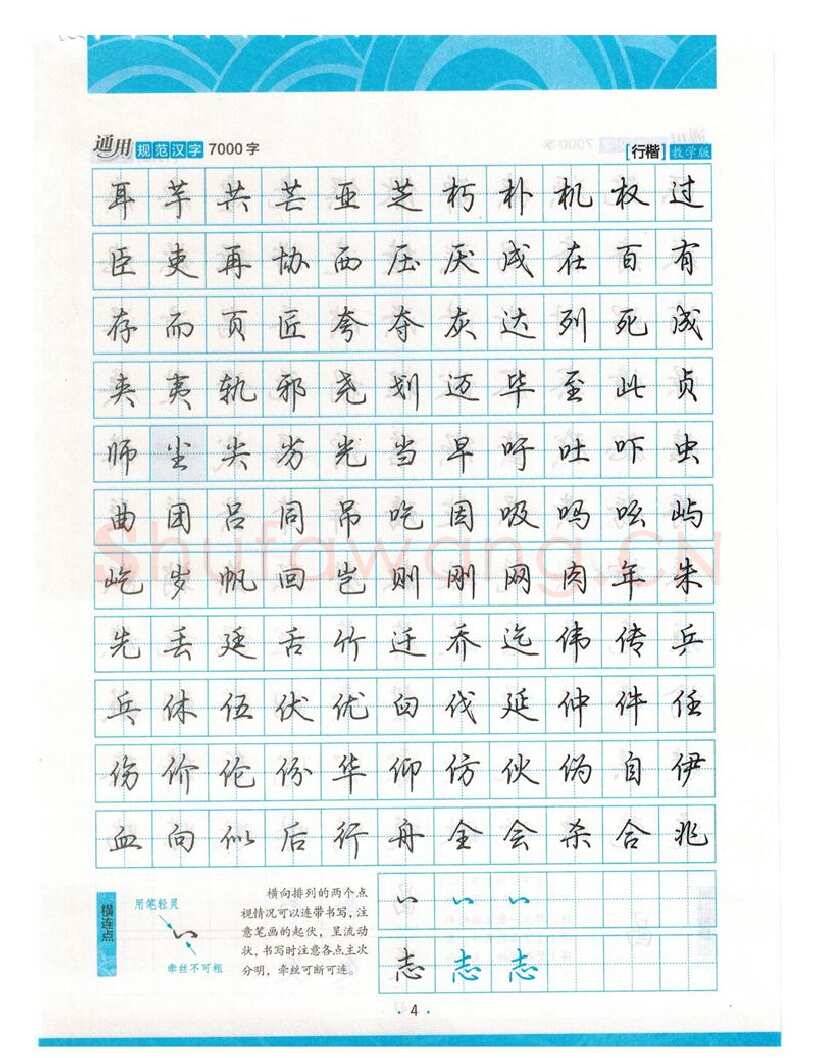 通用规范汉字 7000字
[行楷] 教学版
耳芋共芒亚芝朽朴机权过
臣吏再协西压厌戌在百有
存而页匠夸夺灰达列死成
夹夷轨邪尧划迈毕至此贞
师尘尖劣光当早吁吐吓虫
曲团吕同吊吃因吸吗吆屿
Shufawang.CN
屹岁帆回岂则刚网肉年朱
先丢廷舌竹迁乔迄伟传乒
乓休伍伏优臼伐延仲件任
伤价伦份华仰仿伙伪自伊
血向似后行舟全会杀合兆
横连点
用笔轻灵
牵丝不可粗
横向排列的两个点
视情况可以连带书写,注
意笔画的起伏,呈流动
状,书写时注意各点主次
分明,牵丝可断可连。
志志志
· 4 ·